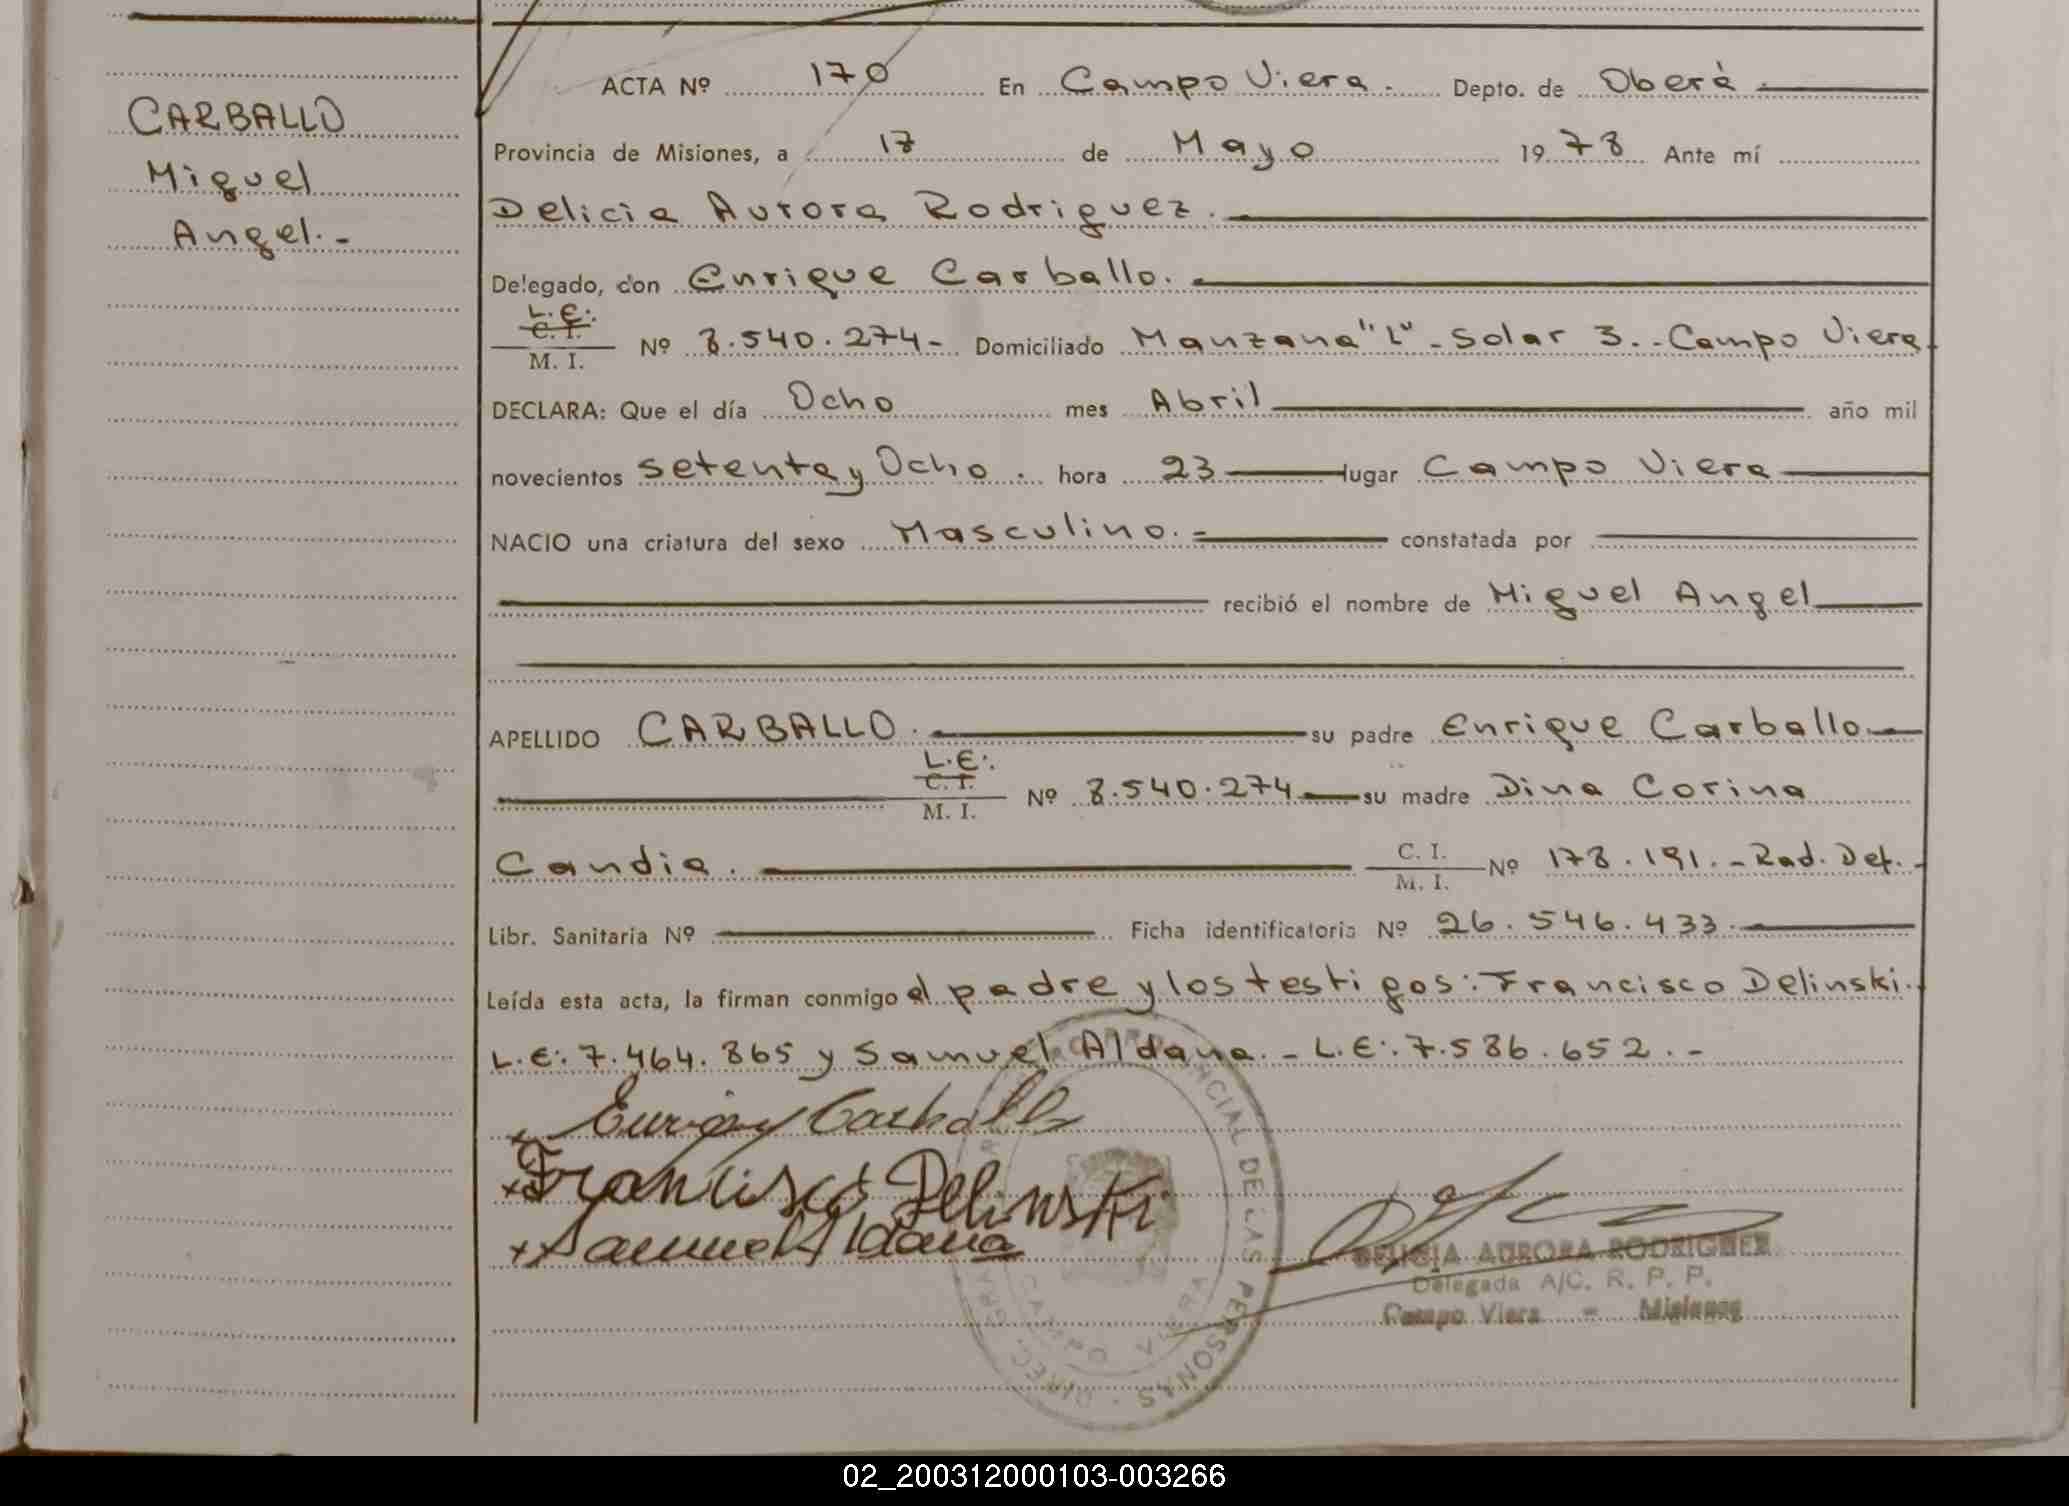 CARBALLO
Miguel
Angel.-
ACTA Nº 170 En Campo Viera. Depto. de Oberá
Provincia de Misiones, a 17 de Mayo 1978 Ante mí
Delicia Aurora Rodriguez.
Delegado, con Enrique Carballo.
L.E:
C. I.
M. I.
Nº 8.540.274- Domiciliado Manzana "L" - Solar 3.- Campo Viera
DECLARA: Que el día Ocho mes Abril año mil
novecientos setenta y Ocho. hora 23 lugar Campo Viera
NACIO una criatura del sexo Masculino.- constatada por
recibió el nombre de Miguel Angel
APELLIDO CARBALLO. su padre Enrique Carballo
L.E:
C. I.
M. I.
Nº 8.540.274 su madre Dina Corina
Candia. C. I. M. I. Nº 178.191.- Rad. Def.-
Libr. Sanitaria Nº Ficha identificatoria Nº 26.546.433.
Leída esta acta, la firman conmigo el padre y los testigos: Francisco Delinski.
L.E:. 7.464.865 y Samuel Aldana. - L.E:. 7.586.652.-
Enrique Carballo
Francisco Delinski
Samuel Aldana
DELICIA AURORA RODRIGUEZ
Delegada A/C. R. P. P.
Campo Viera - Misiones
PROVINCIAL DE LAS PERSONAS · DIREC. GRAL
CAMPO VIERA
02_200312000103-003266